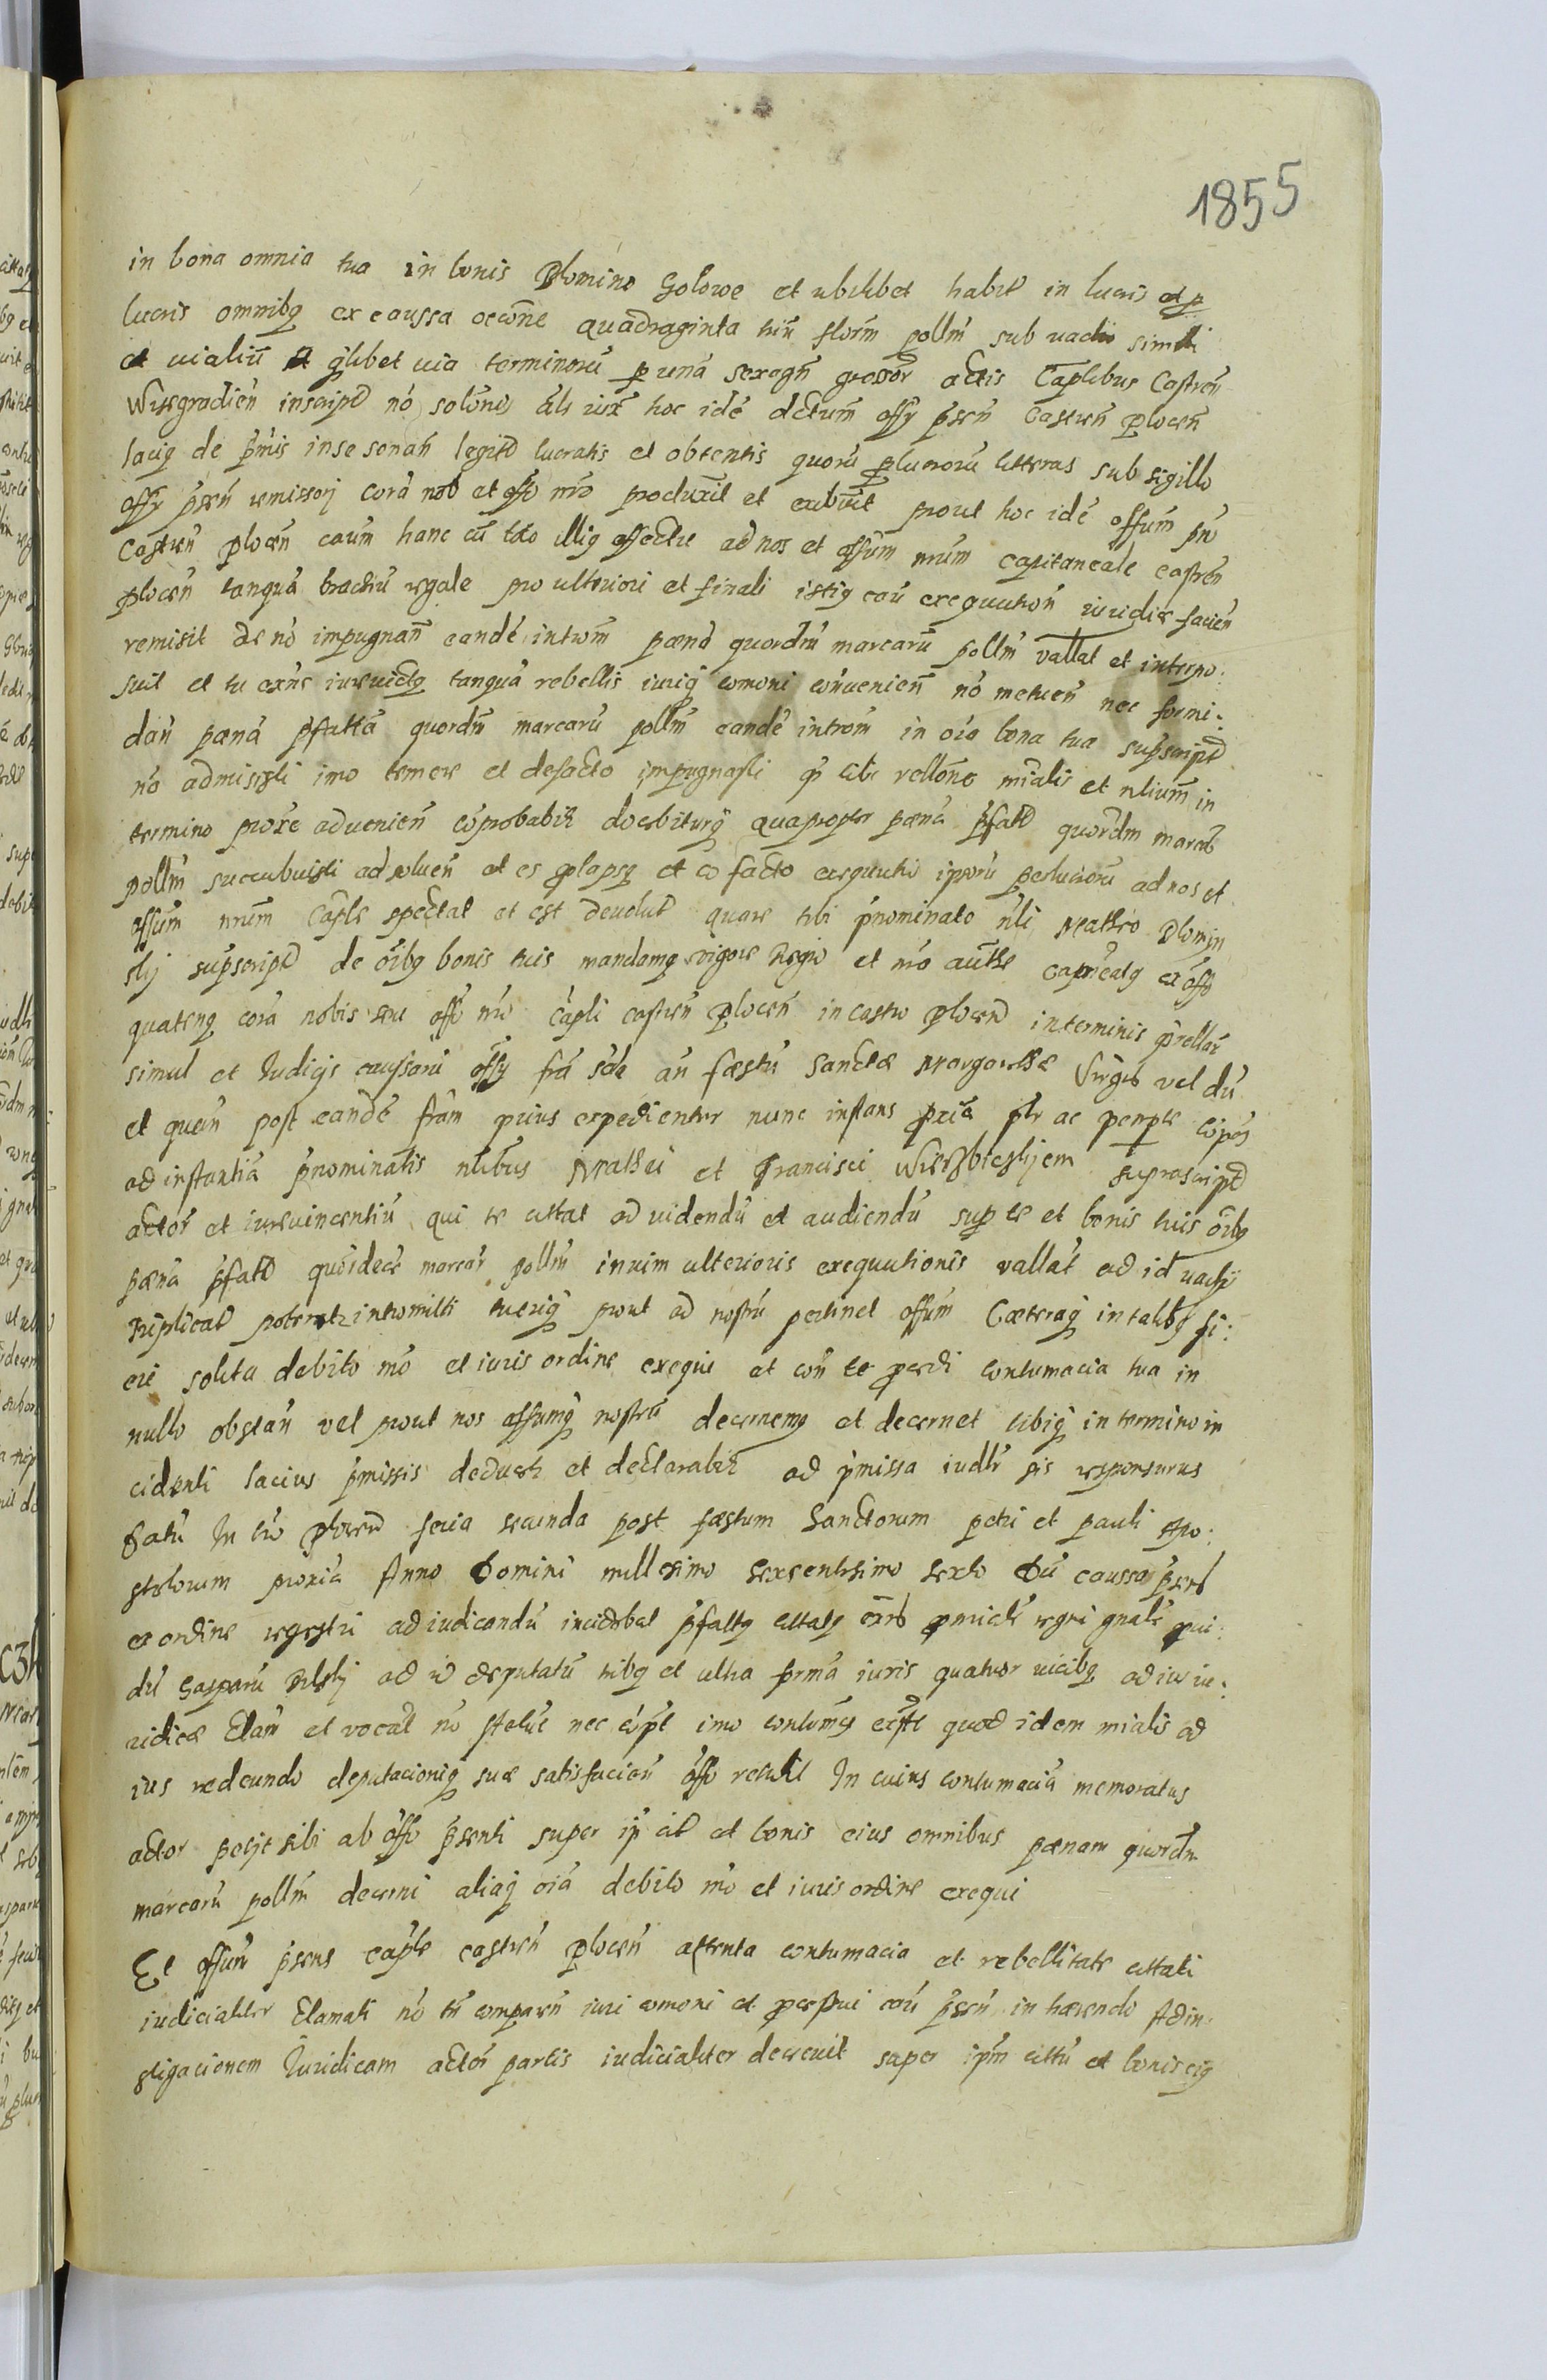 1855
in bona omnia tua in bonis Plomino Golowe et ubilibet habit in lucris et p
lucris omnibq ex caussa occõne quadraginta triũ florm pollm sub vadio simili
et vialiũ et qlibet via terminorũ p unã sexagñ grossor actis Caplibus Castreñ
Wisegradieñ inscript nõ solõne als iux hoc idẽ dctum offy pseñ Castreñ ploceñ
laciq de pmis in se sonañ legit lucratis et obtentis quorũ plucrorũ litteras sub sigillo
offy pseñ remissorj corã nob et offo nro produxit et exibuit prout hoc idẽ offum pñ
Castreñ ploceñ caum hanc cũ toto illiq effectu ad nos et offum nrum capitaneale castreñ
ploceñ tanquã brachiũ regale pro ulteriori et finali istiq caũ exequutioñ iuridice facieñ
remisit de nõ impugnañ eandẽ introm pœnã quordm marcarũ pollm vallat et interpo:
suit et tu exñs iurevictq tanquã rebellis iuriq comoni conuenieñ nõ metueñ nec formi:
dañ pœnã pfattã quordm marcarũ pollm eandẽ introm in oia bona tua supscript
nõ admisisti imo temere et defacto impugnasti qd tibi rellone mialis et nlium in
termino proxe advenieñ cõprobabit docebiturq quapropter pœnã pfatt quordm marcar
pollm succubuisti ad solueñ et es prolapsq et eo facto exequutio ipsorũ perlucrorũ ad nos et
offum nrum Caple spectat et est devolut quare tibi pnominato nli Matheo Plomin
skj supscript de oibq bonis tuis mandamq vigore Regio et nra authe capnealq ex offo
quatenq corã nobis seu offo nro capli castreñ ploceñ in castro ploceñ in terminis qrellar
simul et Iudicijs causarũ offy fra scda añ fæstũ Sanctæ Margarethæ Virgis vel dũ
et queñ post eandẽ fram prius expedientur nunc instans proxiã plr ac pemple cõpas
ad instantiã pnominatis nlibus Mathei et Francisci Wierzbickijem suprascript
actor et iurevincentiũ qui te cittat ad videndũ et audiendũ sup te et bonis tuis oibq
pœnã pfatt quordecẽ marcar pollm in vim ulterioris exequutionis vallat ad id vadij
triplicat poterit intromitti tueriq prout ad nostrũ pertinet offum Cæteraq in talibq fi:
eri solita debito mo et iuris ordine exequi et coñ te procedi contumacia tua in
nullo obstañ vel prout nos offumq nostrũ decernemq et decernet tibiq in termino in
cidenti lacius pmissis deducet et declarabit ad pmissa iudlr sis responsurus
Datũ In cro ploceñ feria secunda post fæstum Sanctorum petri et pauli Apo:
stolorum proxia Anno Domini millesimo sexcentesimo sexto Dũ caussa pseñs
ex ordine regestri ad iudicandũ incidebat pfattq cittatq exñs p mialẽ regni gnalẽ pui:
dũ Gasparũ ad id deputatũ tribq et ultra formã iuris quatuor vicibq ad ius iu:
ridice Clam et vocat nõ stetit nec cõpt imo contumq exstt quod idem mialis ad
ius redeundo deputacioniq suæ satisfacieñ offo retulit In cuius contumaciã memoratus
actor petijt sibi ab offo psenti super ip cit et bonis eius omnibus pœnam quordm
marcarũ pollm decerni aliaq oiã debito mo et iuris ordine exequi
Et offum psens caple castreñ ploceñ attenta contumacia et rebellitate cittati
iudicialiter Clamati nõ tñ compareñ iuri comoni et processui caũ pseñ inhærendo Ad in:
stigacionem Iuridicam actor partis iudicialiter decrevit super ipm cittũ et bonis eiq